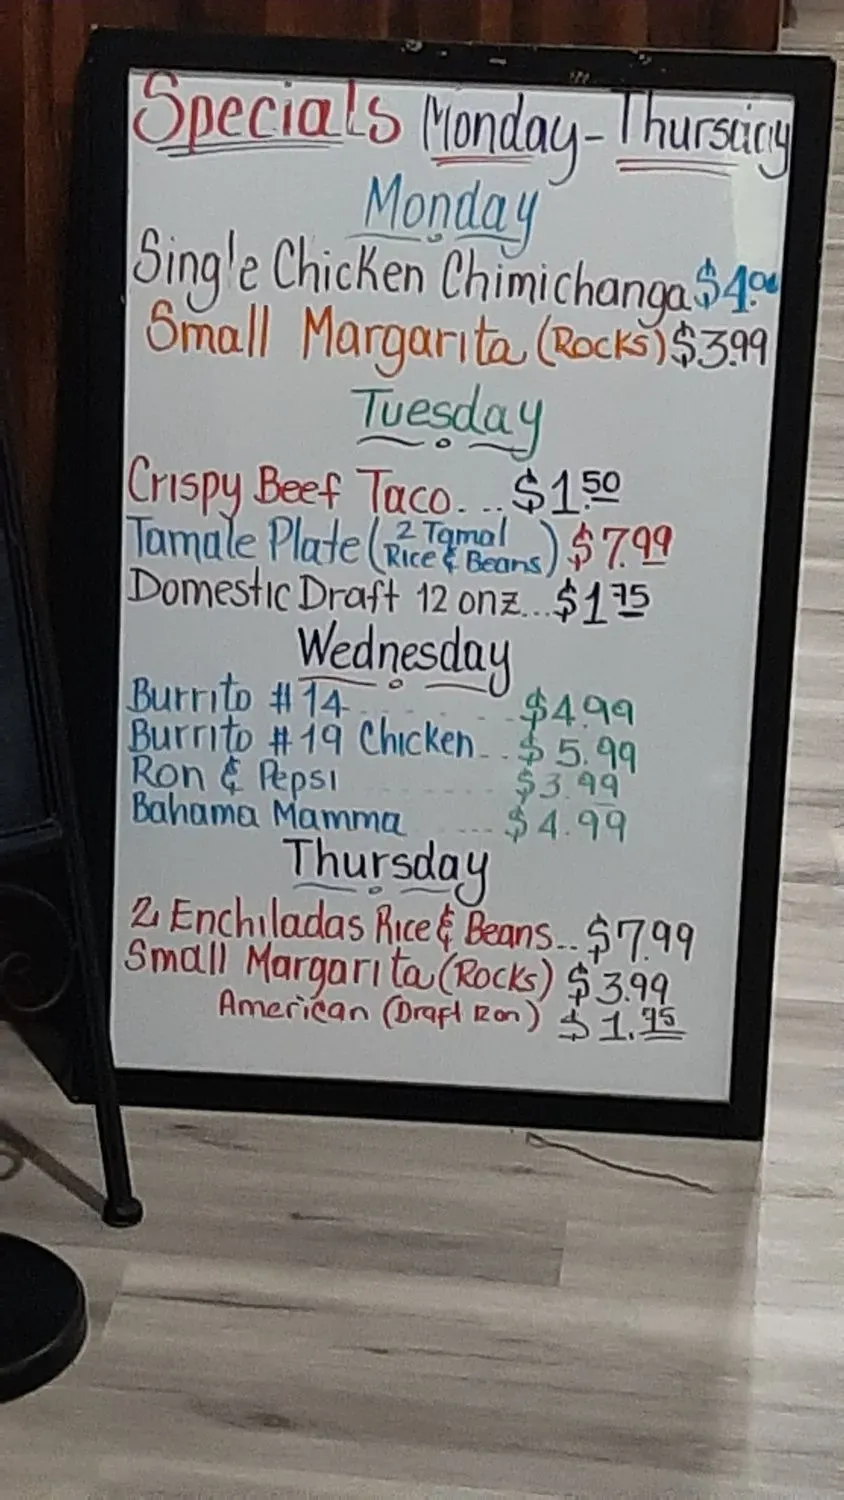 Specials Monday-Thursday
Monday
Single Chicken Chimichanga $4.00
Small Margarita (Rocks) $3.99
Tuesday
Crispy Beef Taco... $1.50
Tamale Plate (2 Tamal Rice & Beans) $7.99
Domestic Draft 12 onz... $1.75
Wednesday
Burrito #14 $4.99
Burrito #19 Chicken.. $5.99
Ron & Pepsi $3.99
Bahama Mamma ... $4.99
Thursday
2 Enchiladas Rice & Beans.. $7.99
Small Margarita (Rocks) $3.99
American (Draft 12 on) $1.75